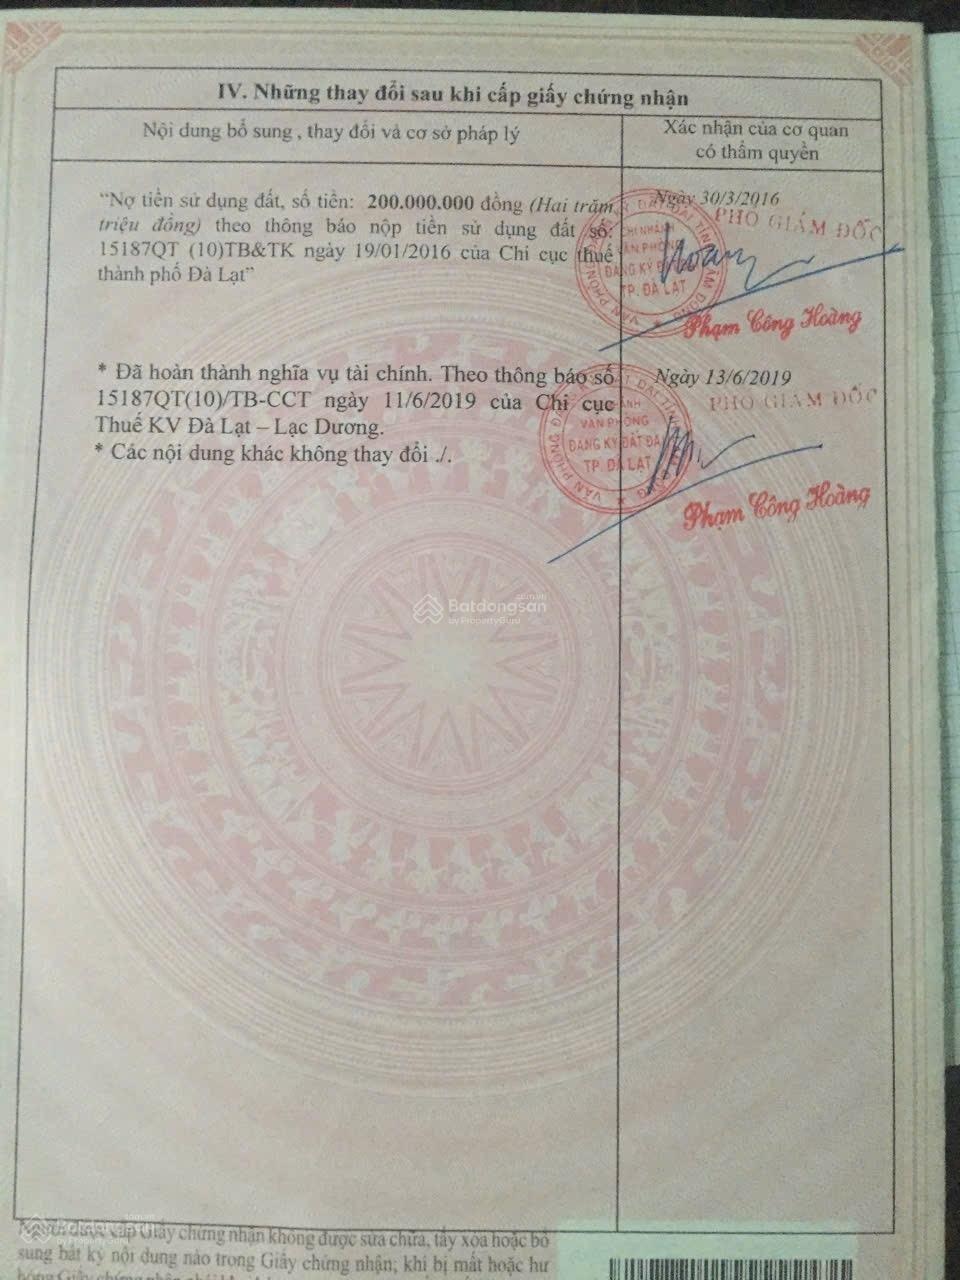 IV. Những thay đổi sau khi cấp giấy chứng nhận
Nội dung bổ sung , thay đổi và cơ sở pháp lý
Xác nhận của cơ quan
có thẩm quyền
“Nợ tiền sử dụng đất, số tiền: 200.000.000 đồng (Hai trăm
triệu đồng) theo thông báo nộp tiền sử dụng đất số:
15187QT (10)TB&TK ngày 19/01/2016 của Chi cục thuế
thành phố Đà Lạt”
Ngày 30/3/2016
PHÓ GIÁM ĐỐC
CHI NHÁNH
VĂN PHÒNG
ĐĂNG KÝ ĐẤT ĐAI
TP. ĐÀ LẠT
Phạm Công Hoàng
* Đã hoàn thành nghĩa vụ tài chính. Theo thông báo số
15187QT(10)/TB-CCT ngày 11/6/2019 của Chi cục
Thuế KV Đà Lạt – Lạc Dương.
* Các nội dung khác không thay đổi ./.
Ngày 13/6/2019
PHÓ GIÁM ĐỐC
VĂN PHÒNG
ĐĂNG KÝ ĐẤT ĐAI
TP. ĐÀ LẠT
Phạm Công Hoàng
Batdongsan.com.vn
by PropertyGuru
Người được cấp Giấy chứng nhận không được sửa chữa, tẩy xóa hoặc bổ
sung bất kỳ nội dung nào trong Giấy chứng nhận; khi bị mất hoặc hư